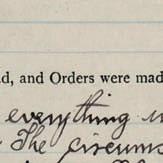 d, and Orders were mad
everything
The circums